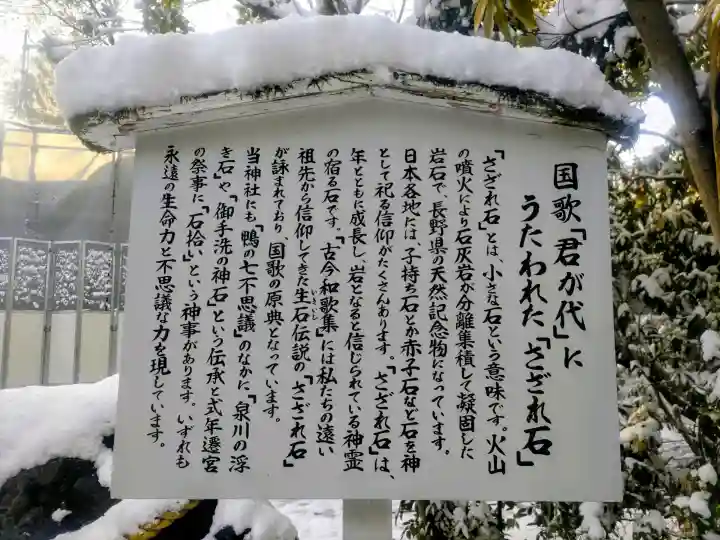 国歌「君が代」に
うたわれた「さざれ石」
「さざれ石」とは、小さな石という意味です。火山
の噴火により石灰岩が分離集積して凝固した
岩石で、長野県の天然記念物になっています。
日本各地には、子持ち石とか赤子石など石を神
として祀る信仰がたくさんあります。「さざれ石」は、
年とともに成長し、岩となると信じられている神霊
の宿る石です。「古今和歌集」には私たちの遠い
祖先から信仰してきた生石伝説の「さざれ石」
いきいし
が詠まれており、国歌の原典となっています。
当神社にも「鴨の七不思議」のなかに、「泉川の浮
き石」や、「御手洗の神石」という伝承と式年遷宮
の祭事に「石拾い」という神事があります。いずれも
永遠の生命力と不思議な力を現しています。